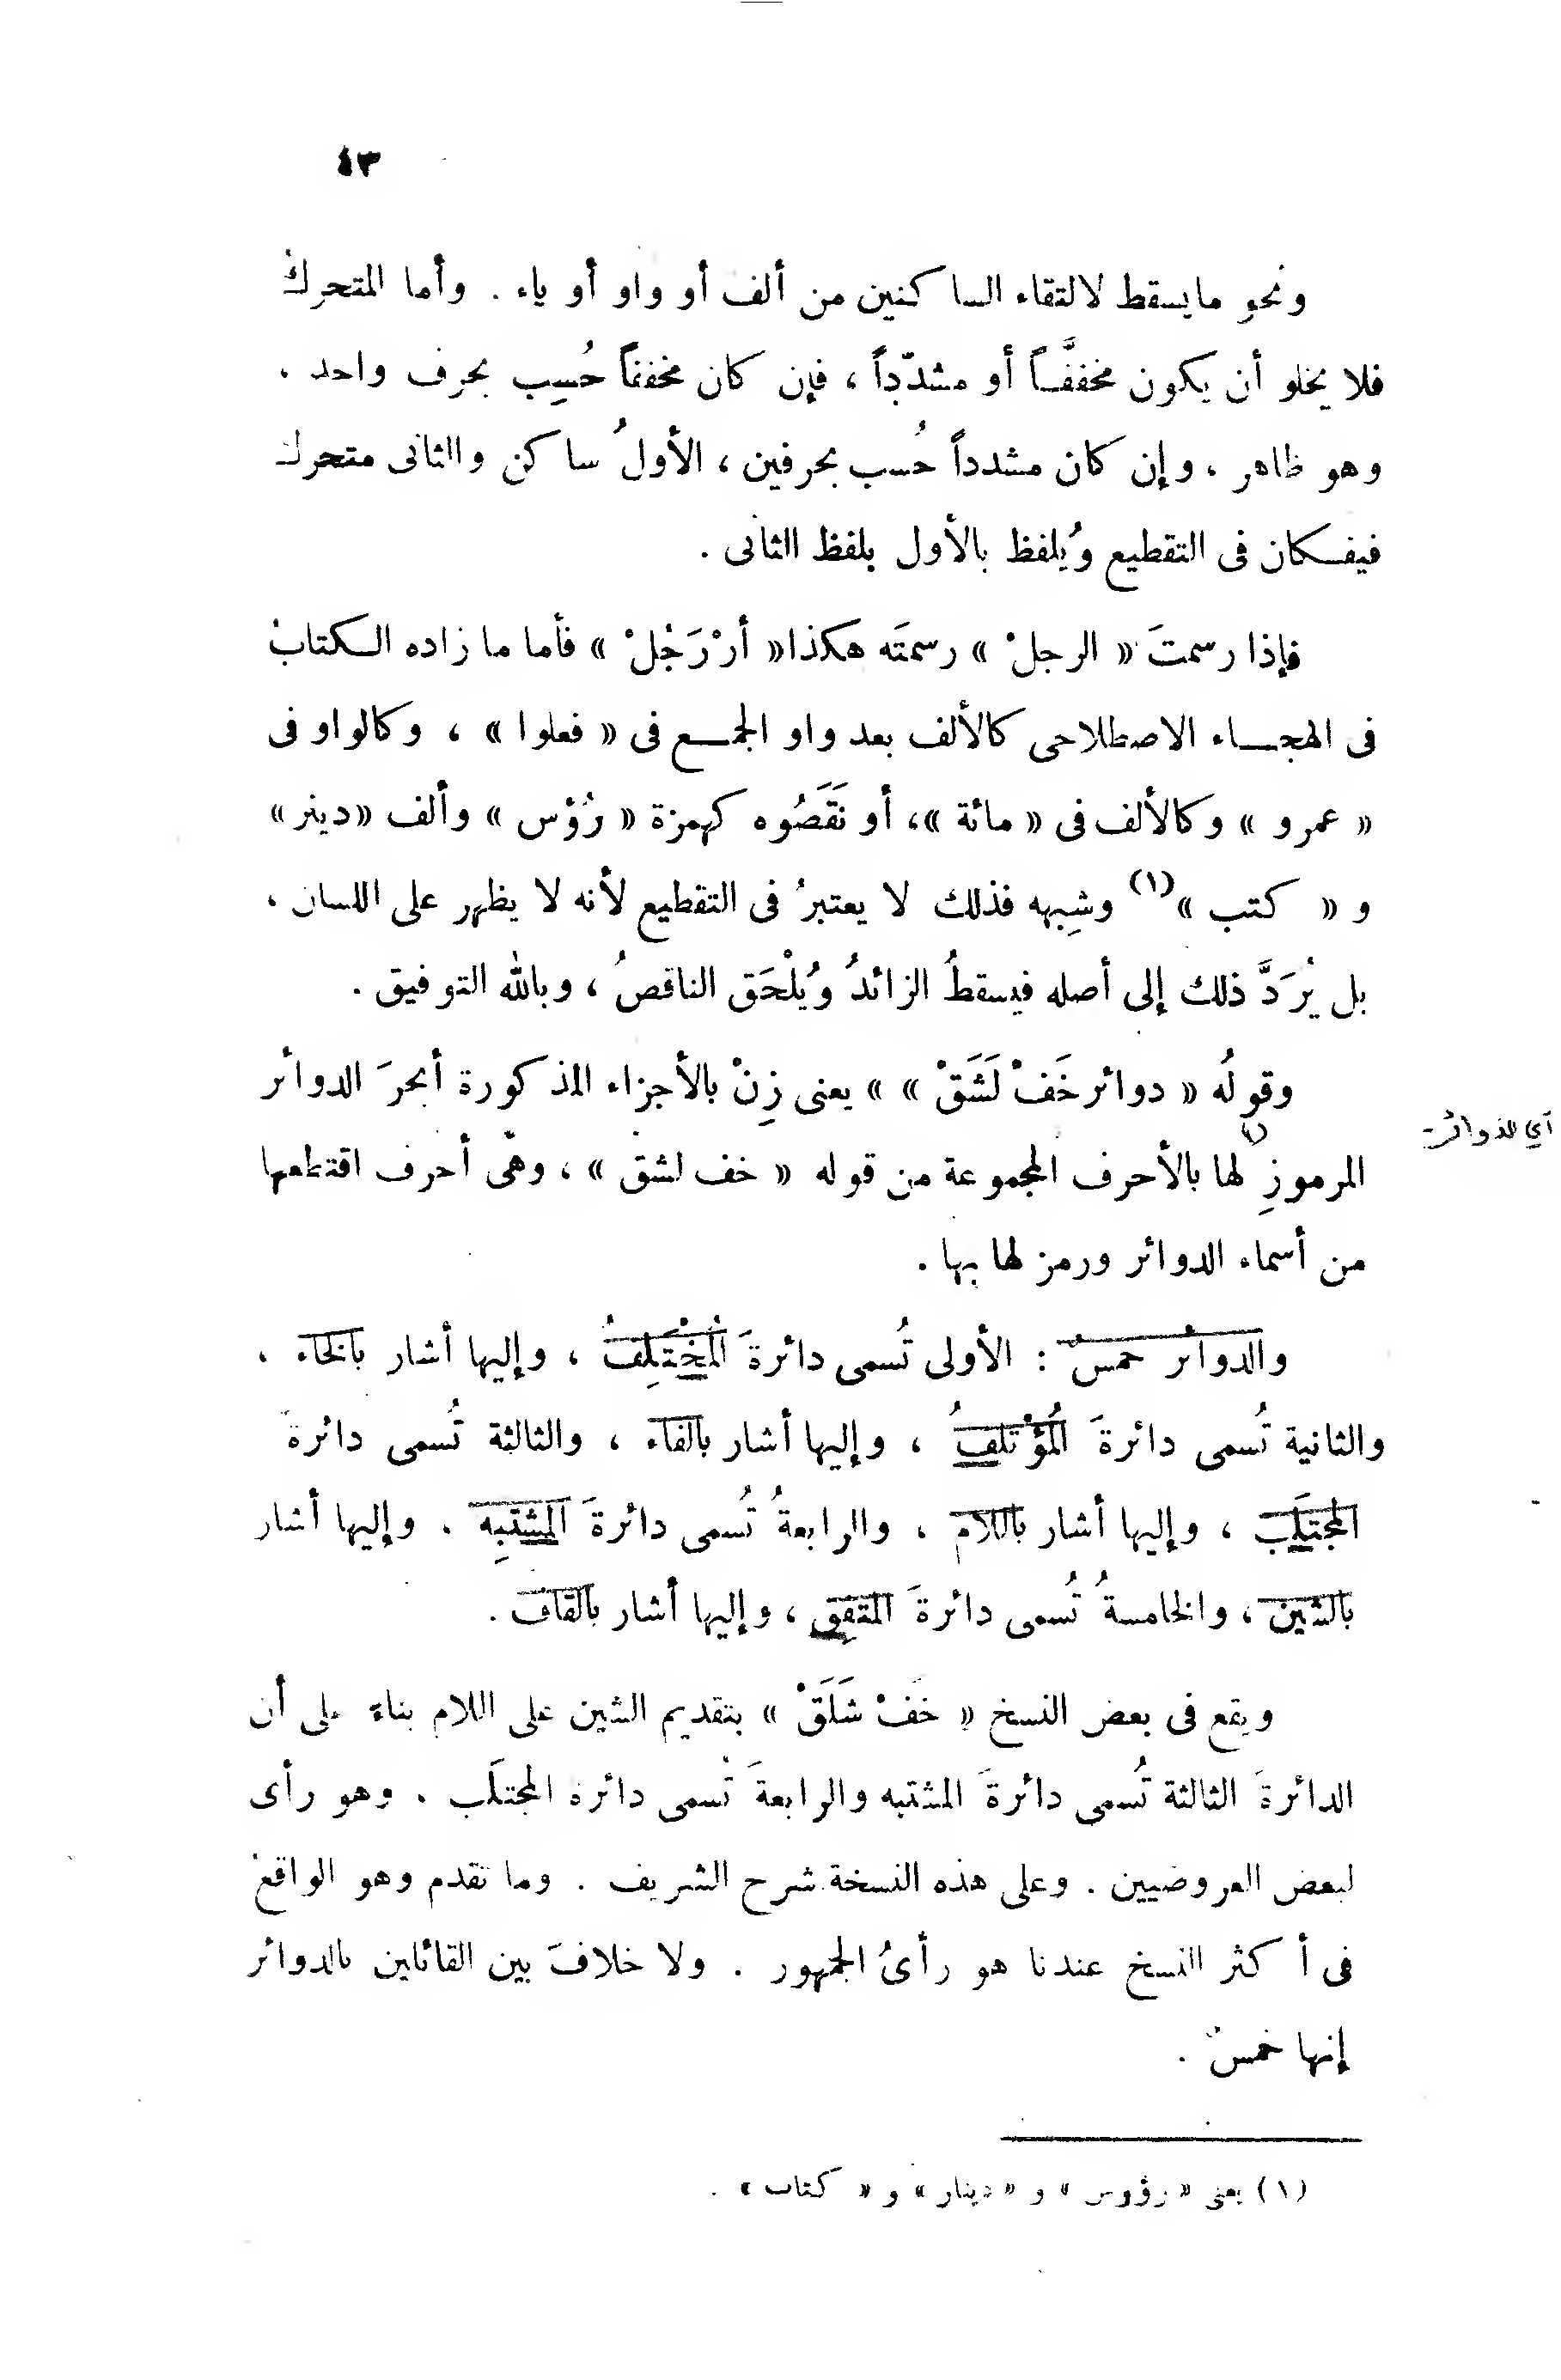 ٤٣
ونحو ما يسقط لالتقاء الساكنين من ألف أو واو أو ياء . وأما المتحرك
فلا يخلو أن يكون مخففَّاً أو مشدّداً ، فإن كان مخففاً حُسِب بحرف واحد .
وهو ظاهر . وإن كان مشدداً حُسب بحرفين ، الأولُ ساكن والثانى متحرك
فيفكان فى التقطيع ويُلفظ بالأول بلفظ الثانى .
فإذا رسمتَ « الرجلْ » رسمتَه هكذا « أرْرَجُلْ » فأما ما زاده الكتابُ
فى الهجاء الاصطلاحى كالألف بعد واو الجمع فى « فعلوا » ، وكالواو فى
« عمرو » وكالألف فى « مائة » ، أو نَقَصُوه كهمزة « رُؤس » وألف « دينر »
و « كتب » (١) وشِبهه فذلك لا يعتبرُ فى التقطيع لأنه لا يظهر على اللسان ،
بل يُرَدَّ ذلك إلى أصله فيسقطُ الزائدُ ويُلْحَق الناقصُ ، وبالله التوفيق .
وقولُه « دوائر خَفْ لَشَقْ » » يعنى زِنْ بالأجزاء المذكورة أبحرَ الدوائر
أي للدوائر
المرموزِ لها بالأحرف المجموعة من قوله « خف لشق » ، وهى أحرف اقتطعها
من أسماء الدوائر ورمز لها بها .
والدوائر خمسٌ : الأولى تُسمى دائرةَ المُخْتَلِفُ ، وإليها أشار بالخاء .
والثانية تُسمى دائرةَ المُؤْتلفُ ، وإليها أشار بالفاء ، والثالثة تُسمى دائرةَ
المجتلَب ، وإليها أشار باللام ، والرابعةُ تُسمى دائرةَ المشتبِه . وإليها أشار
بالشين ، والخامسةُ تُسمى دائرةَ المتفِق ، وإليها أشار بالقاف .
ويقع فى بعض النسخ « خَفْ شَلَقْ » بتقديم الشين على اللام بناءً على أن
الدائرةَ الثالثة تُسمى دائرةَ المشتبه والرابعةَ تُسمى دائرة المجتلَب . وهو رأى
لبعض العروضيين . وعلى هذه النسخة شرح الشريف . وما تقدم وهو الواقع
فى أكثر النسخ عندنا هو رأىُ الجمهور . ولا خلافَ بين القائلين بالدوائر
إنها خمسٌ .
(١) يعنى « رؤوس » و « دينار » و « كتاب » .